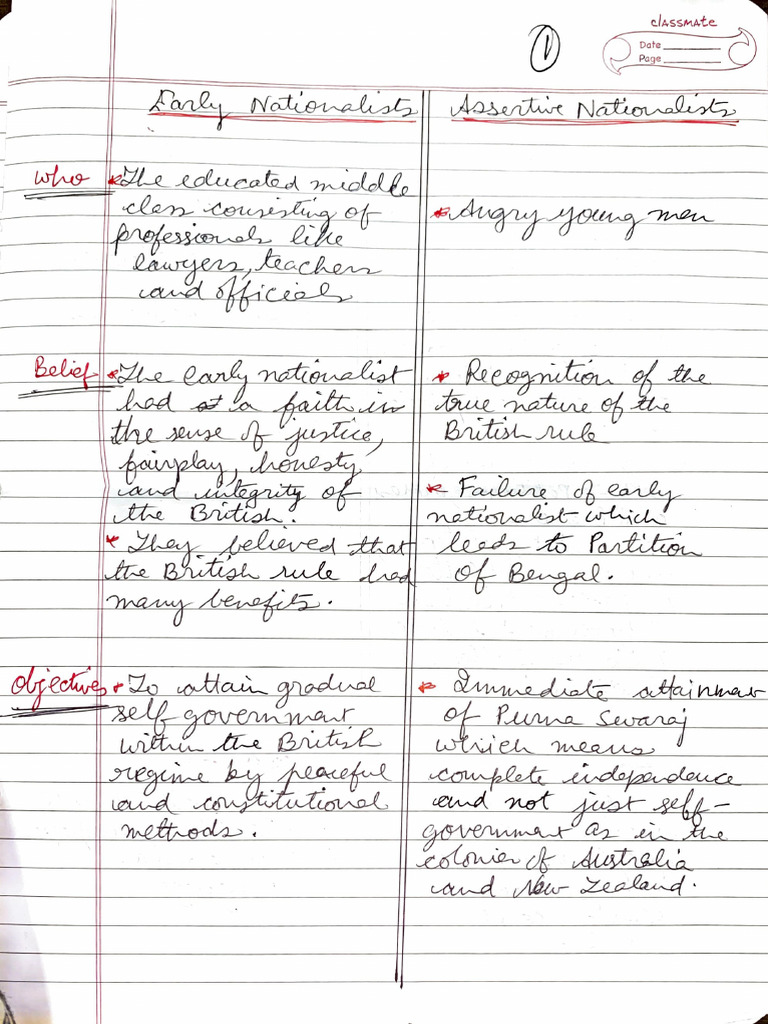 classmate
Date
Page
1
Early Nationalists
Assertive Nationalists
Who
* The educated middle
class consisting of
professionals like
lawyers, teachers
and officials
* Angry young men
Belief
* The early nationalist
had a faith in
the sense of justice,
fairplay, honesty
and integrity of
the British.
* They believed that
the British rule had
many benefits.
* Recognition of the
true nature of the
British rule
* Failure of early
nationalist which
leads to Partition
of Bengal.
Objectives
* To attain gradual
self government
within the British
regime by peaceful
and constitutional
methods.
* Immediate attainment
of Purna Swaraj
which means
complete independence
and not just self-
government as in the
colonies of Australia
and New Zealand.